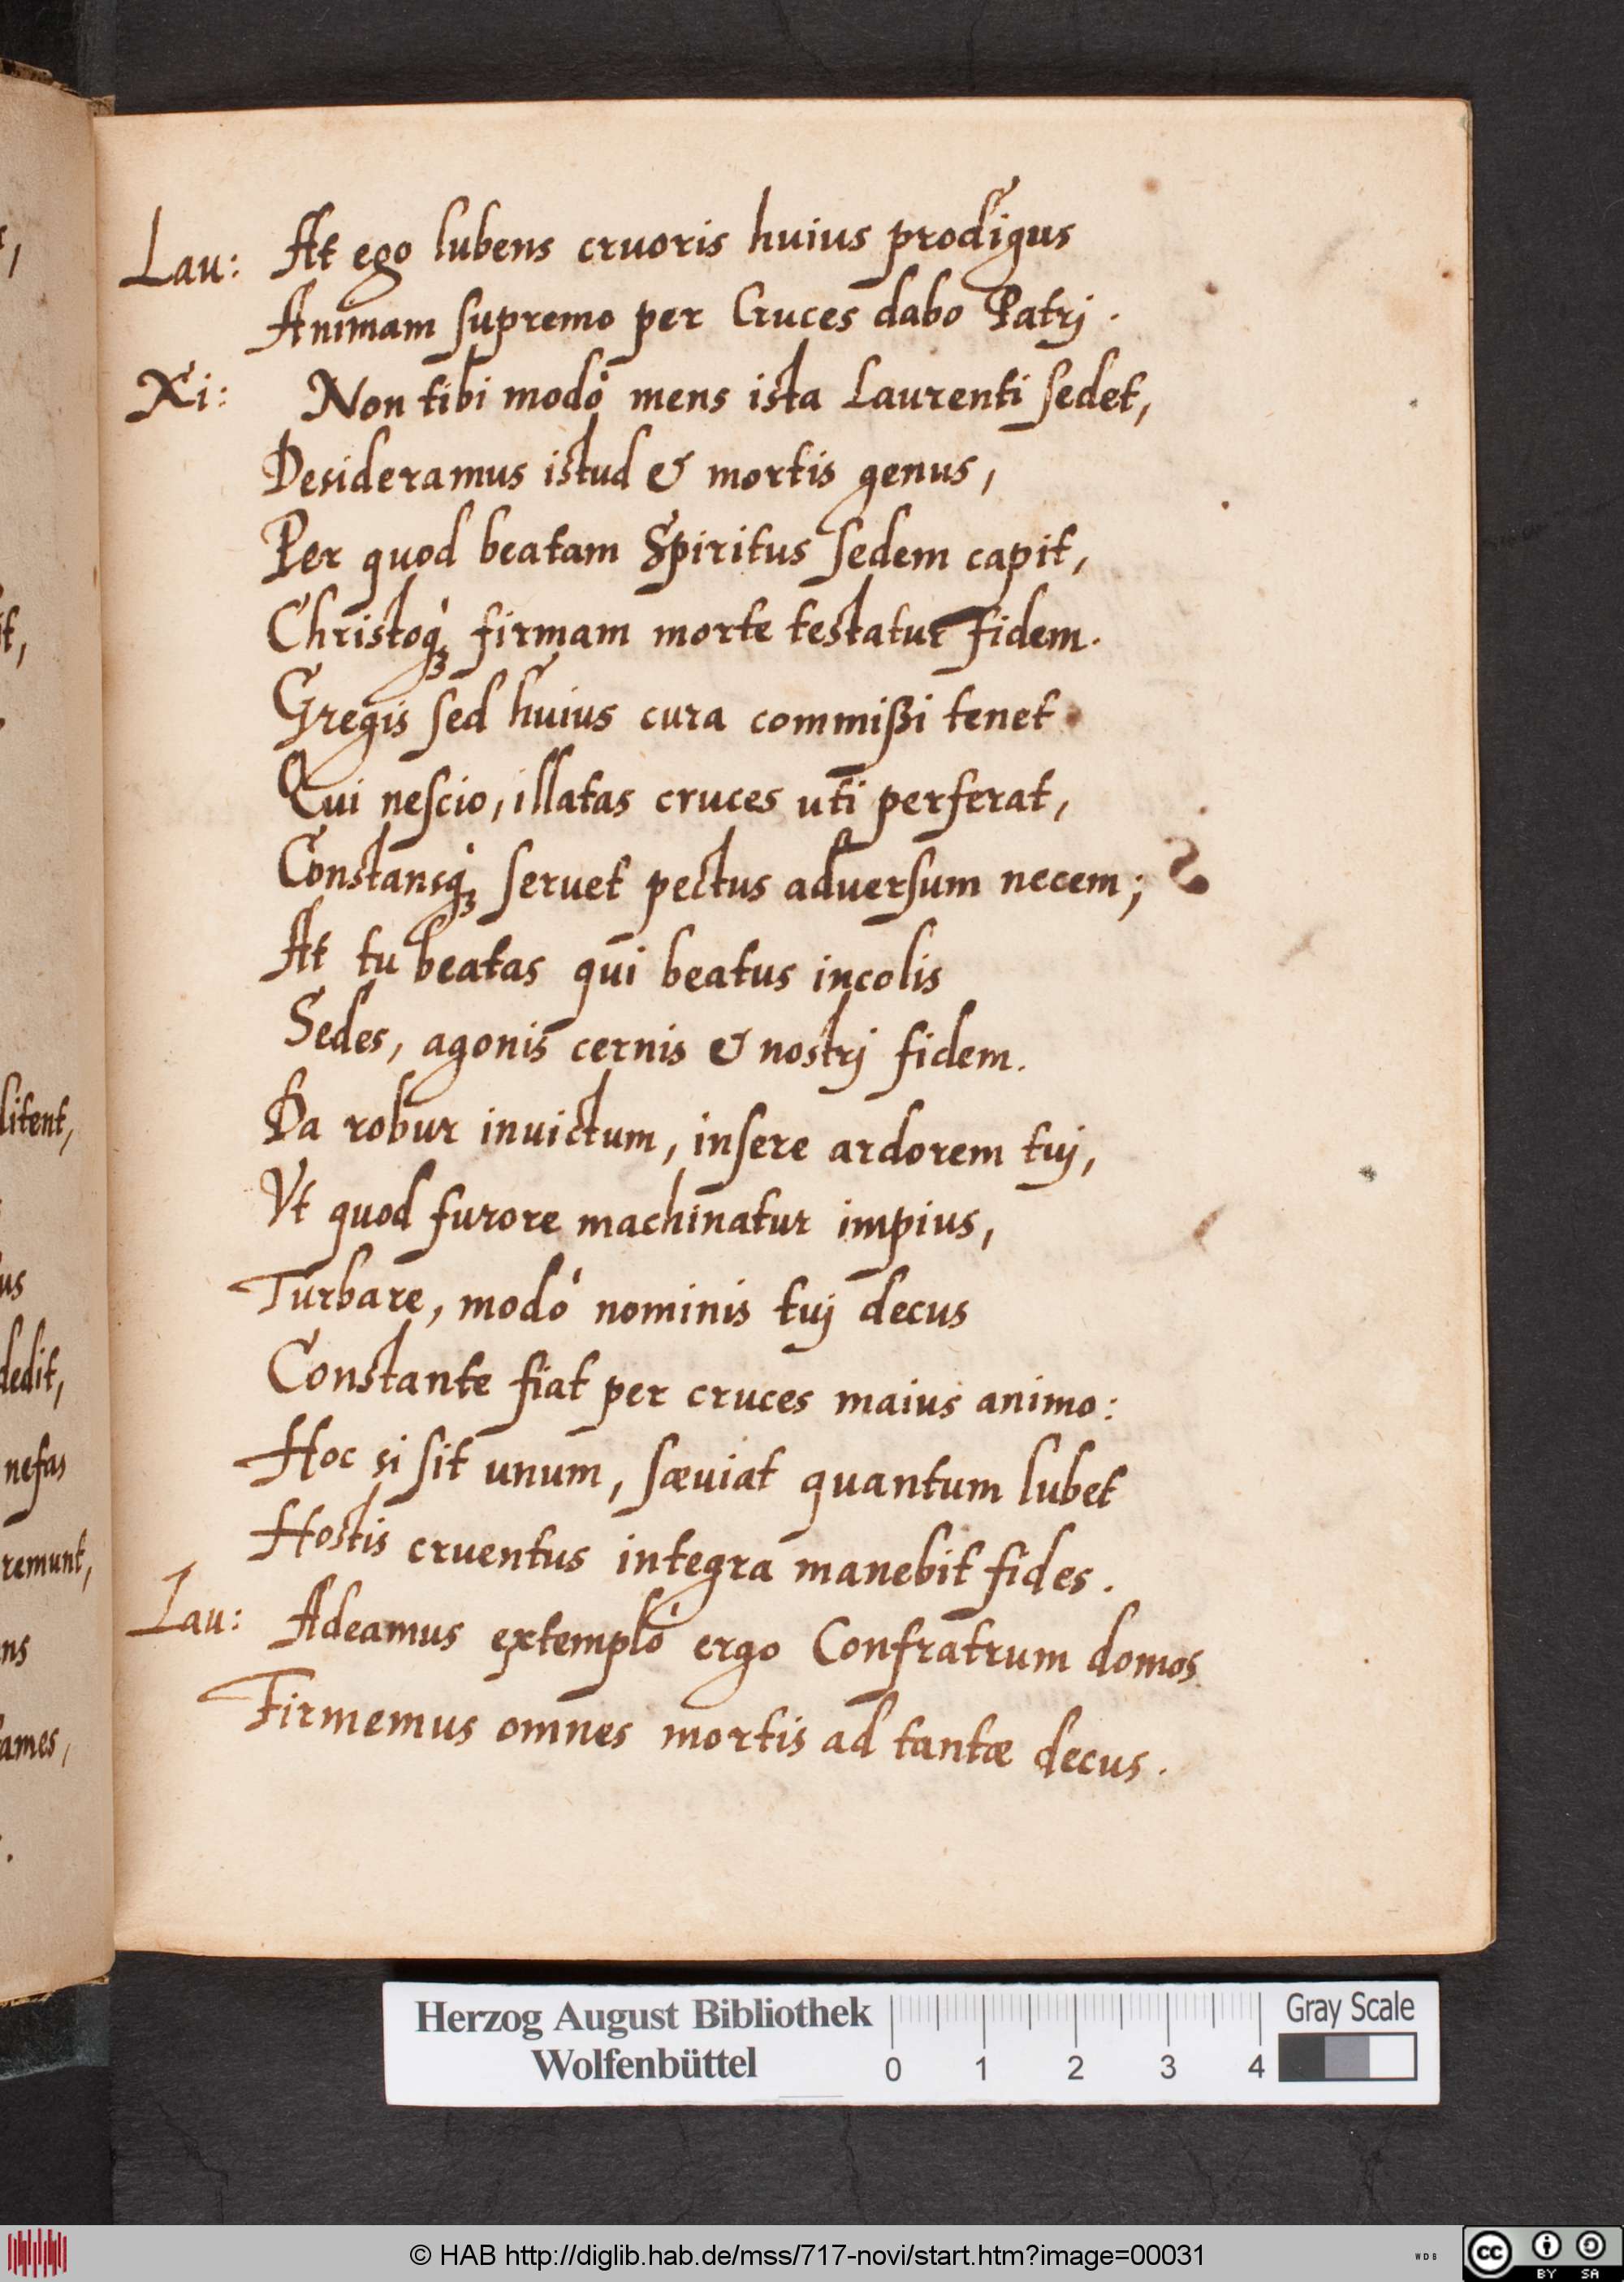 Lau: At ego lubens cruoris huius prodigus
Animam ſupremo per Cruces dabo Patrj.
Xi: Non tibi modò mens ista Laurenti ſedet,
Desideramus istud & mortis genus,
Per quod beatam Spiritus ſedem capit,
Christoq́ꝫ firmam morte testatur fidem.
Gregis ſed huius cura commißi tenet
Qui neſcio, illatas cruces uti perferat,
Constansq́ꝫ ſeruet pectus aduerſum necem;
At tu beatas qui beatus incolis
Sedes, agonis cernis & nostrj fidem.
Da robur inuictum, inſere ardorem tuj,
Vt quod furore machinatur impius,
Turbare, modò nominis tuj decus
Constante fiat per cruces maius animo:
Hoc si ſit unum, ſæuiat quantum lubet
Hostis cruentus integra manebit fides.
Lau: Adeamus extemplò ergo Confratrum domos
Firmemus omnes mortis ad tantæ decus.
litent,
us
dedit,
nefas
remunt,
ns
ames,
Herzog August Bibliothek
Wolfenbüttel
0 1 2 3 4
Gray Scale
© HAB http://diglib.hab.de/mss/717-novi/start.htm?image=00031
WDB
cc BY SA